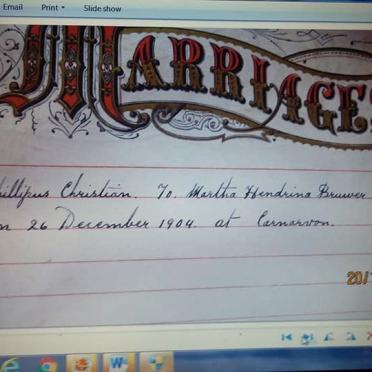 Email Print Slide show
MARRIAGES
illipus Christian. To. Martha Hendrina Bruwer
n 26 December 1904. at Carnarvon.
20/1
W